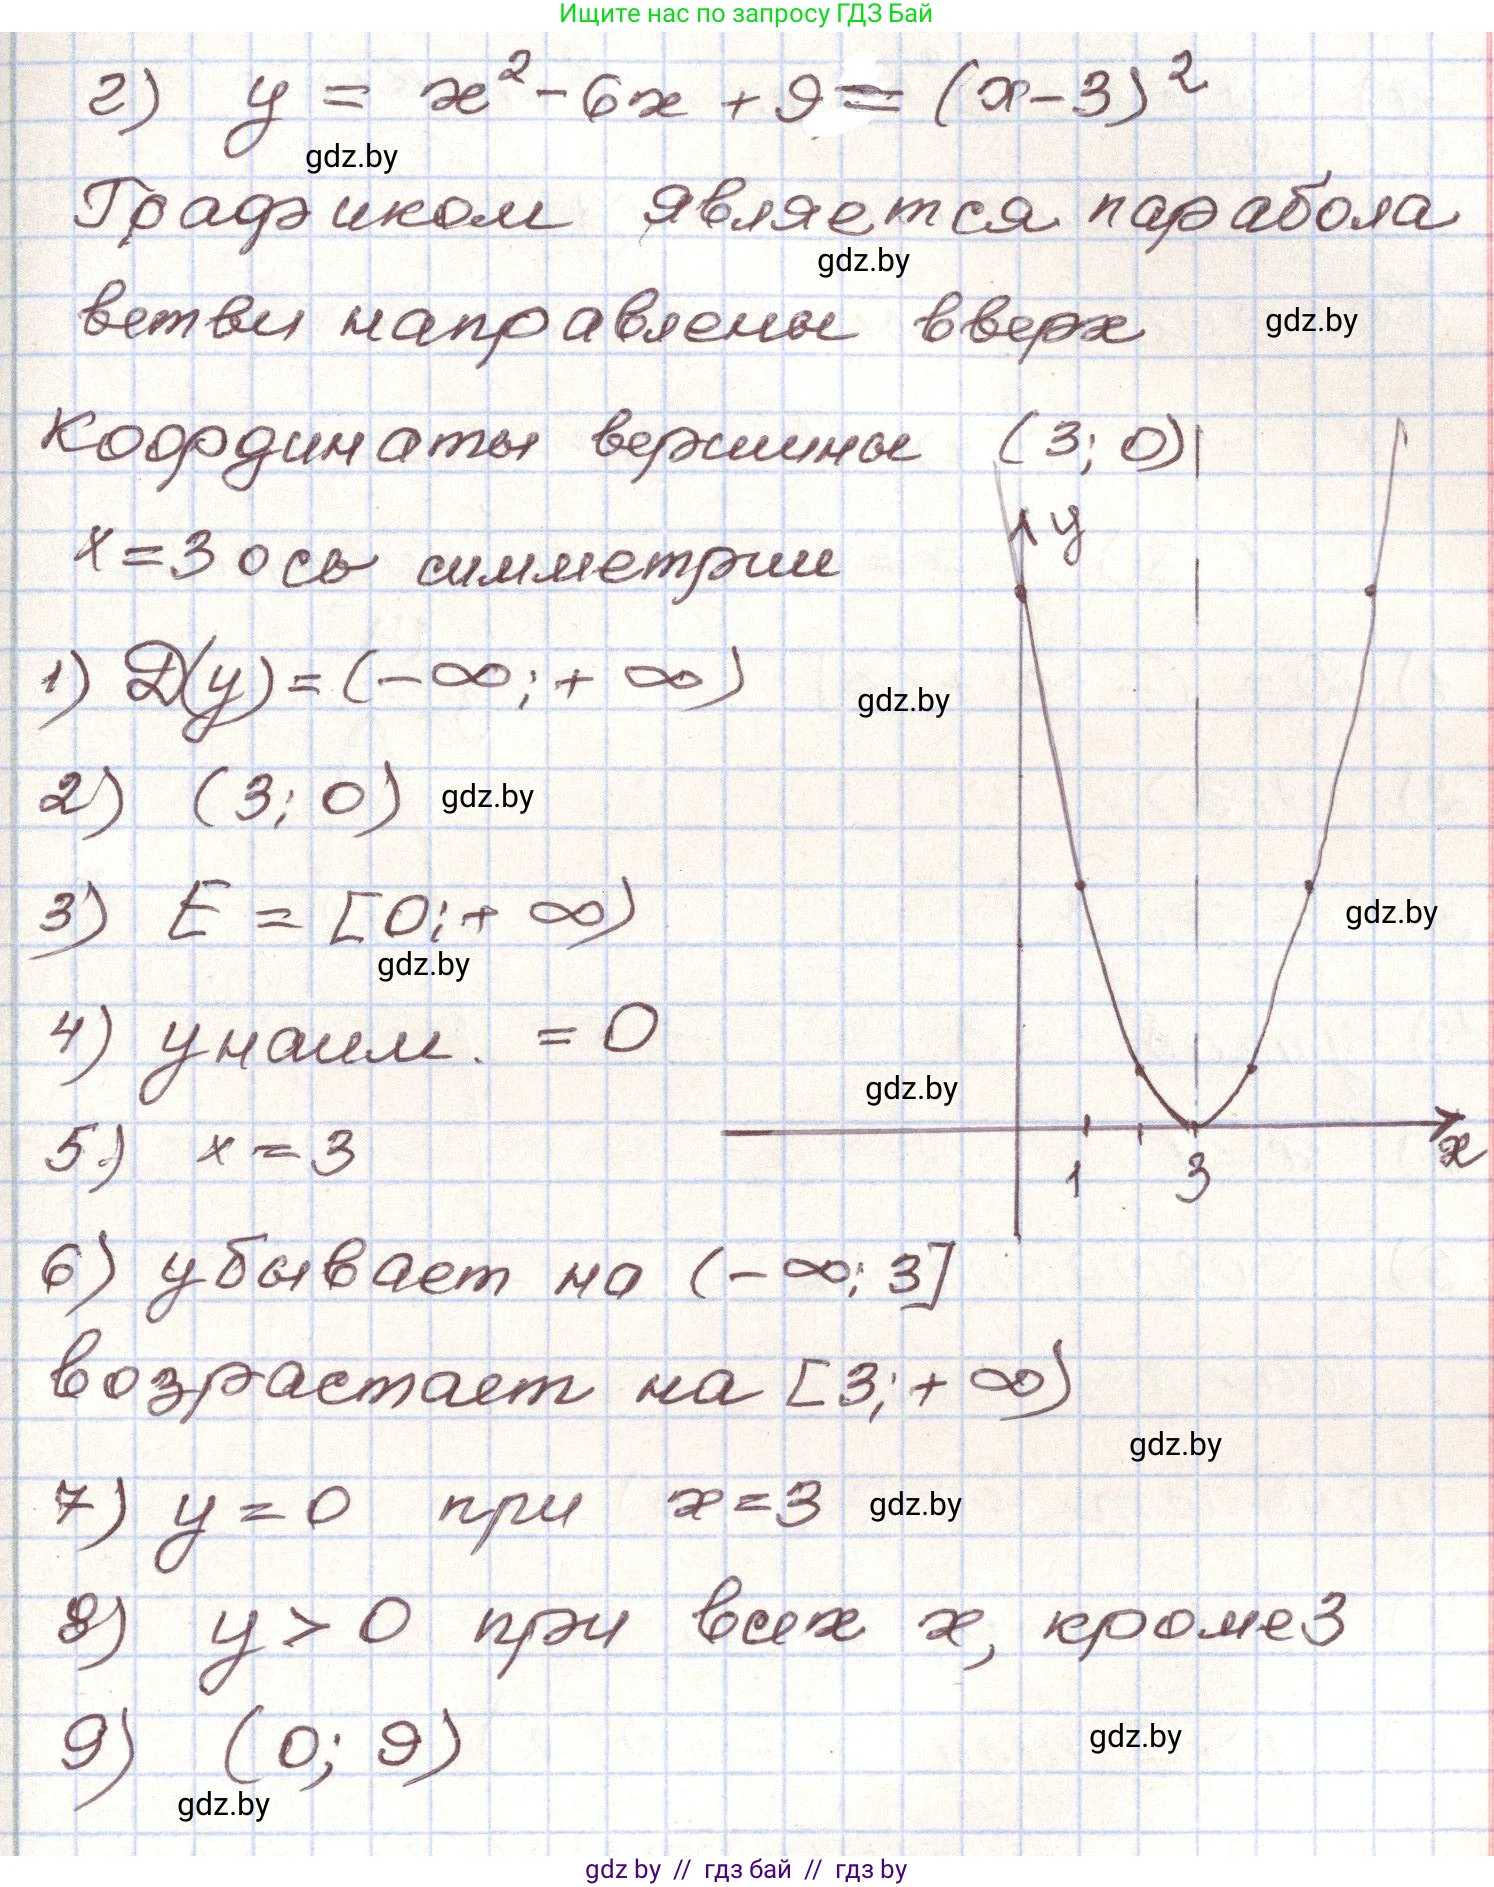 Ищите нас по запросу ГДЗ Бай
г) y = x² - 6x + 9 = (x - 3)²
gdz.by
Графиком является парабола
gdz.by
ветви направлены вверх
gdz.by
Координаты вершины (3; 0)
y
x = 3 ось симметрии
1) D(y) = (-∞; +∞)
gdz.by
2) (3; 0)
gdz.by
3) E = [0; +∞)
gdz.by
gdz.by
4) y наим. = 0
gdz.by
5) x = 3
1 3 x
6) убывает на (-∞; 3]
возрастает на [3; +∞)
gdz.by
7) y = 0 при x = 3
gdz.by
8) y > 0 при всех x, кроме 3
9) (0; 9)
gdz.by
gdz.by
gdz by // гдз бай // гдз by